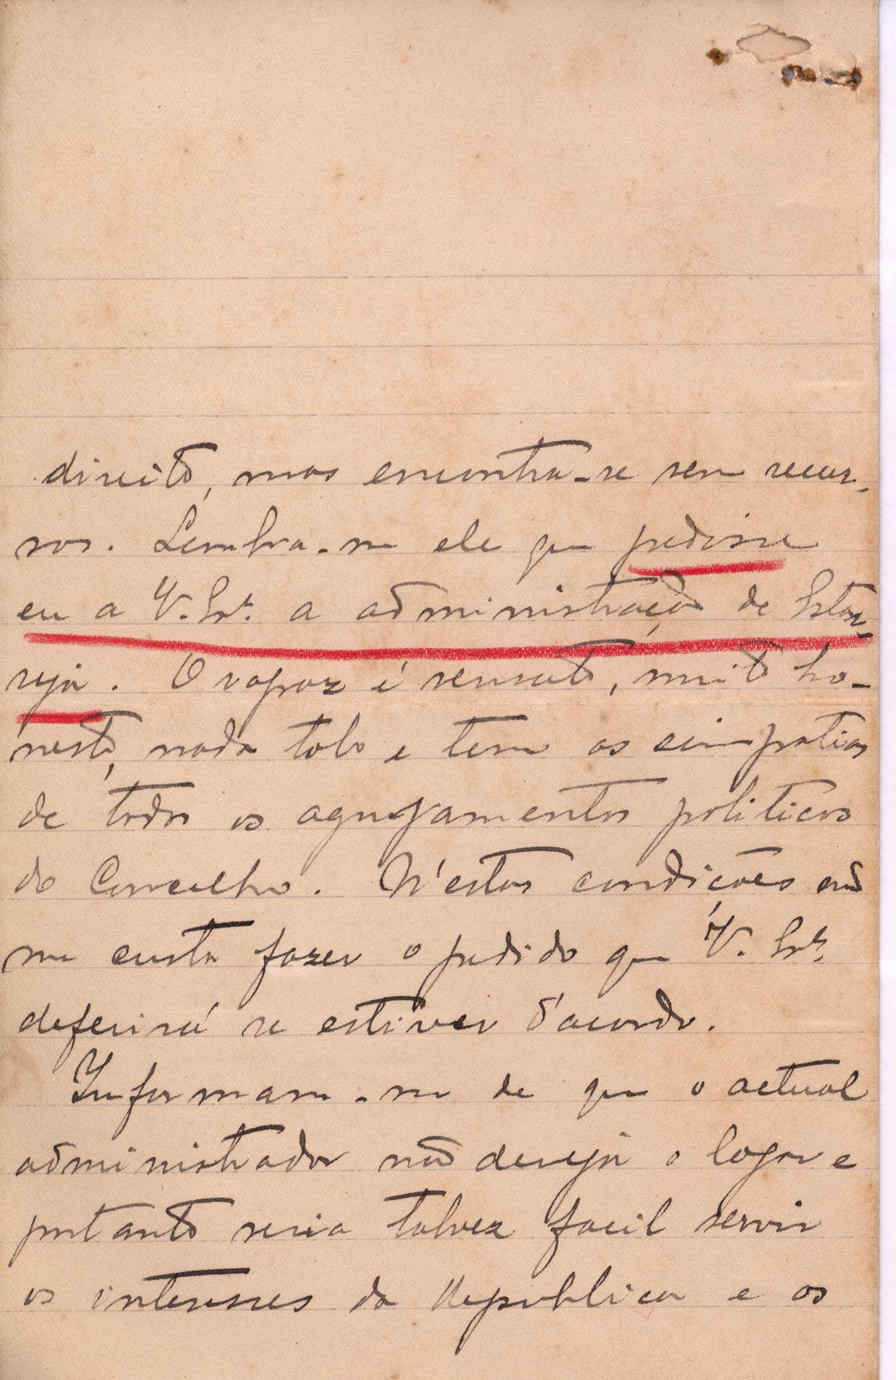 direito, mas encontra-se sem recur-
sos. Lembra-me ele que pedisse
eu a V. Exª. a administração de Estar-
reja. O rapaz é sensato, muito ho-
nesto, nada tolo e tem as simpatias
de todos os agrupamentos politicos
do Concelho. N'estas condições não
me custa fazer o pedido que V. Exª.
deferirá se estiver d'acordo.
Informam-me de que o actual
administrador não deseja o logar e
portanto seria talvez facil servir
os interesses da Republica e os